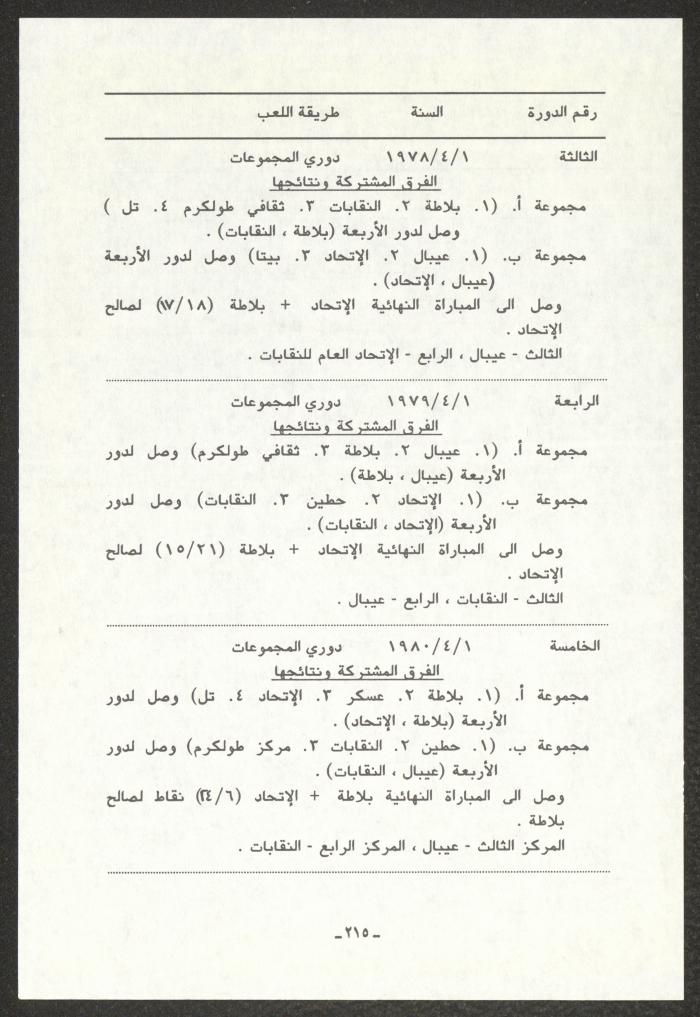 رقم الدورة السنة طريقة اللعب
الثالثة ١٩٧٨/٤/١ دوري المجموعات
الفرق المشتركة ونتائجها
مجموعة أ. (١. بلاطة ٢. النقابات ٣. ثقافي طولكرم ٤. تل )
وصل لدور الأربعة (بلاطة ، النقابات) .
مجموعة ب. (١. عيبال ٢. الإتحاد ٣. بيتا) وصل لدور الأربعة
(عيبال ، الإتحاد) .
وصل الى المباراة النهائية الإتحاد + بلاطة (١٧/١٨) لصالح
الإتحاد .
الثالث - عيبال ، الرابع - الإتحاد العام للنقابات .
الرابعة ١٩٧٩/٤/١ دوري المجموعات
الفرق المشتركة ونتائجها
مجموعة أ. (١. عيبال ٢. بلاطة ٣. ثقافي طولكرم) وصل لدور
الأربعة (عيبال ، بلاطة) .
مجموعة ب. (١. الإتحاد ٢. حطين ٣. النقابات) وصل لدور
الأربعة (الإتحاد ، النقابات) .
وصل الى المباراة النهائية الإتحاد + بلاطة (١٥/٢١) لصالح
الإتحاد .
الثالث - النقابات ، الرابع - عيبال .
الخامسة ١٩٨٠/٤/١ دوري المجموعات
الفرق المشتركة ونتائجها
مجموعة أ. (١. بلاطة ٢. عسكر ٣. الإتحاد ٤. تل) وصل لدور
الأربعة (بلاطة ، الإتحاد) .
مجموعة ب. (١. حطين ٢. النقابات ٣. مركز طولكرم) وصل لدور
الأربعة (عيبال ، النقابات) .
وصل الى المباراة النهائية بلاطة + الإتحاد (٢٤/٦) نقاط لصالح
بلاطة .
المركز الثالث - عيبال ، المركز الرابع - النقابات .
ـ ٢١٥ ـ